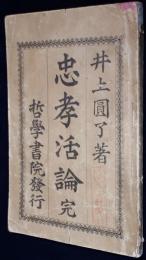 井上圓了著
忠孝活論 完
哲學書院發行